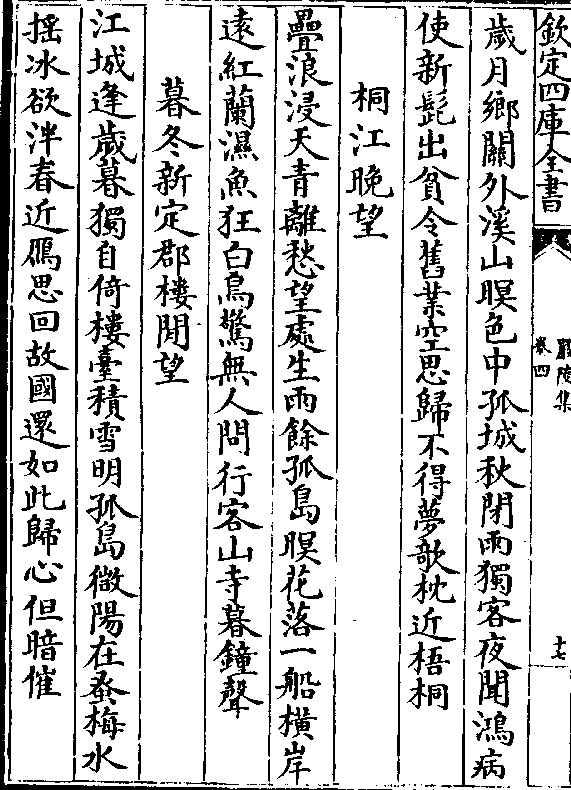 欽定四庫全書
嚴陵集
卷四
十七
歲月鄉關外溪山暝色中孤城秋閉雨獨客夜聞鴻病
使新髭出貧令舊業空思歸不得夢欹枕近梧桐
桐江晚望
疊浪浸天青離愁望處生雨餘孤島暝花落一船橫岸
遠紅蘭濕魚狂白鳥驚無人問行客山寺暮鐘聲
暮冬新定郡樓閒望
江城逢歲暮獨自倚樓臺積雪明孤島微陽在蚤梅水
揺冰欲泮春近鴈思回故國還如此歸心但暗催